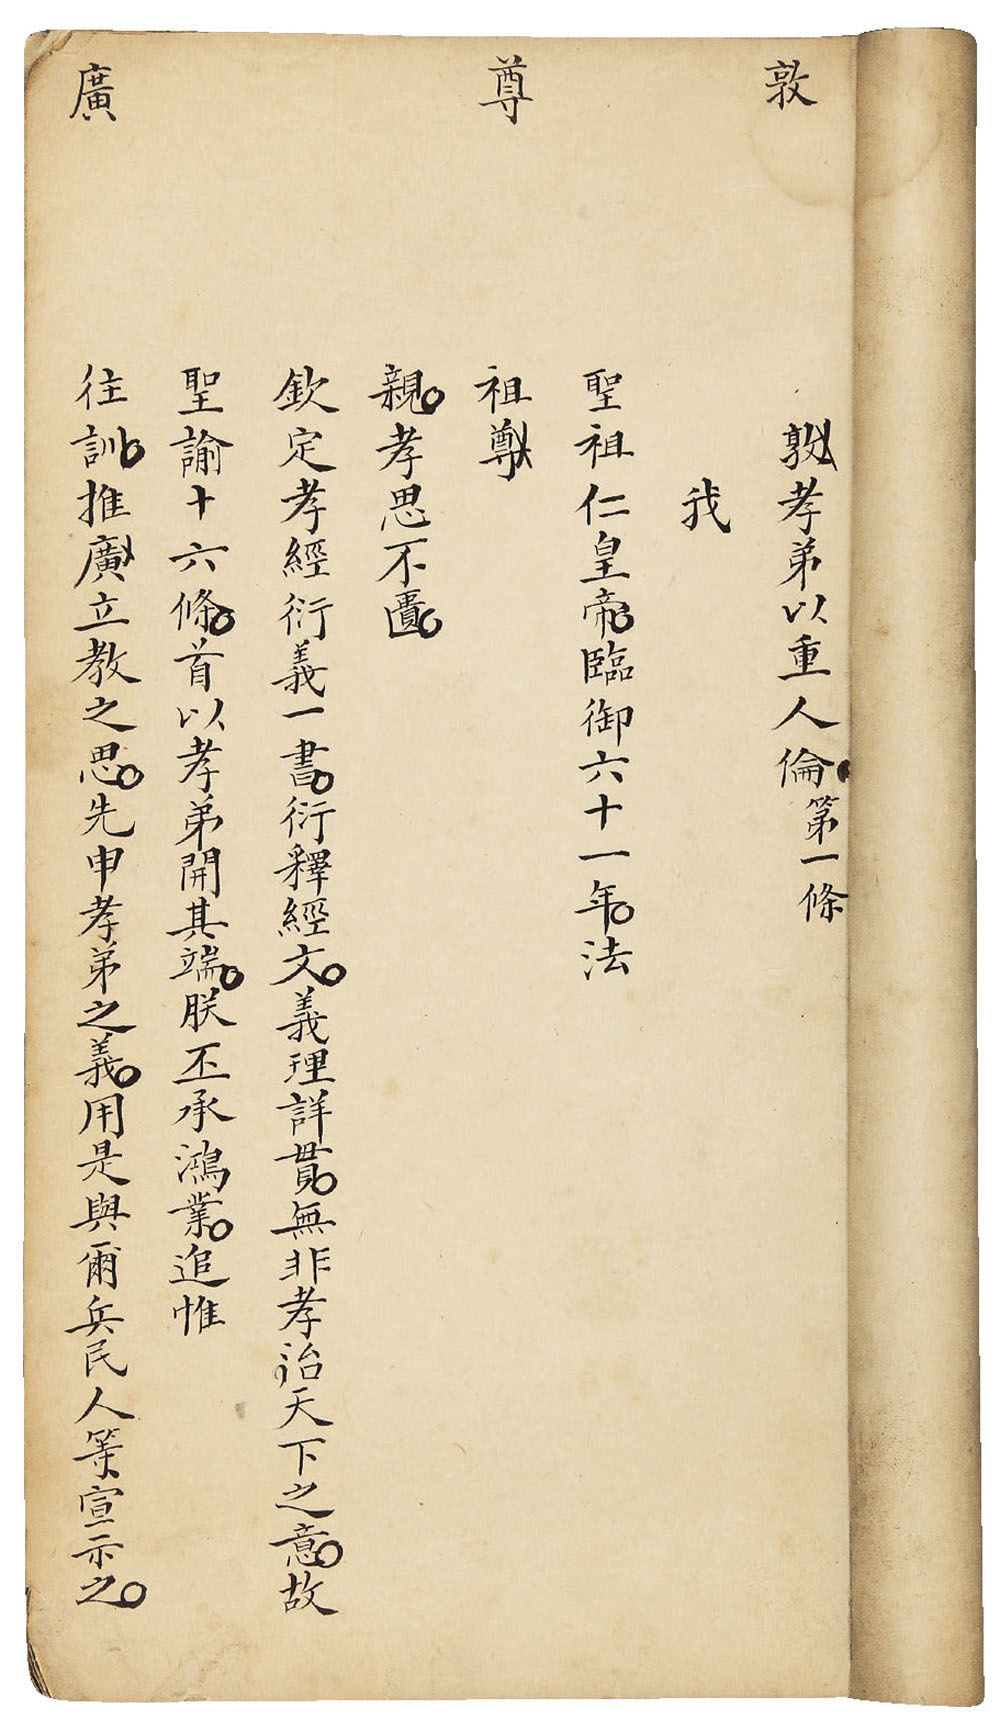 敦 尊 廣
敦孝弟以重人倫 第一條
我
聖祖仁皇帝臨御六十一年法
祖尊
親孝思不匱
欽定孝經衍義一書衍釋經文義理詳貫無非孝治天下之意故
聖諭十六條首以孝弟開其端朕丕承鴻業追惟
往訓推廣立教之思先申孝弟之義用是與爾兵民人等宣示之